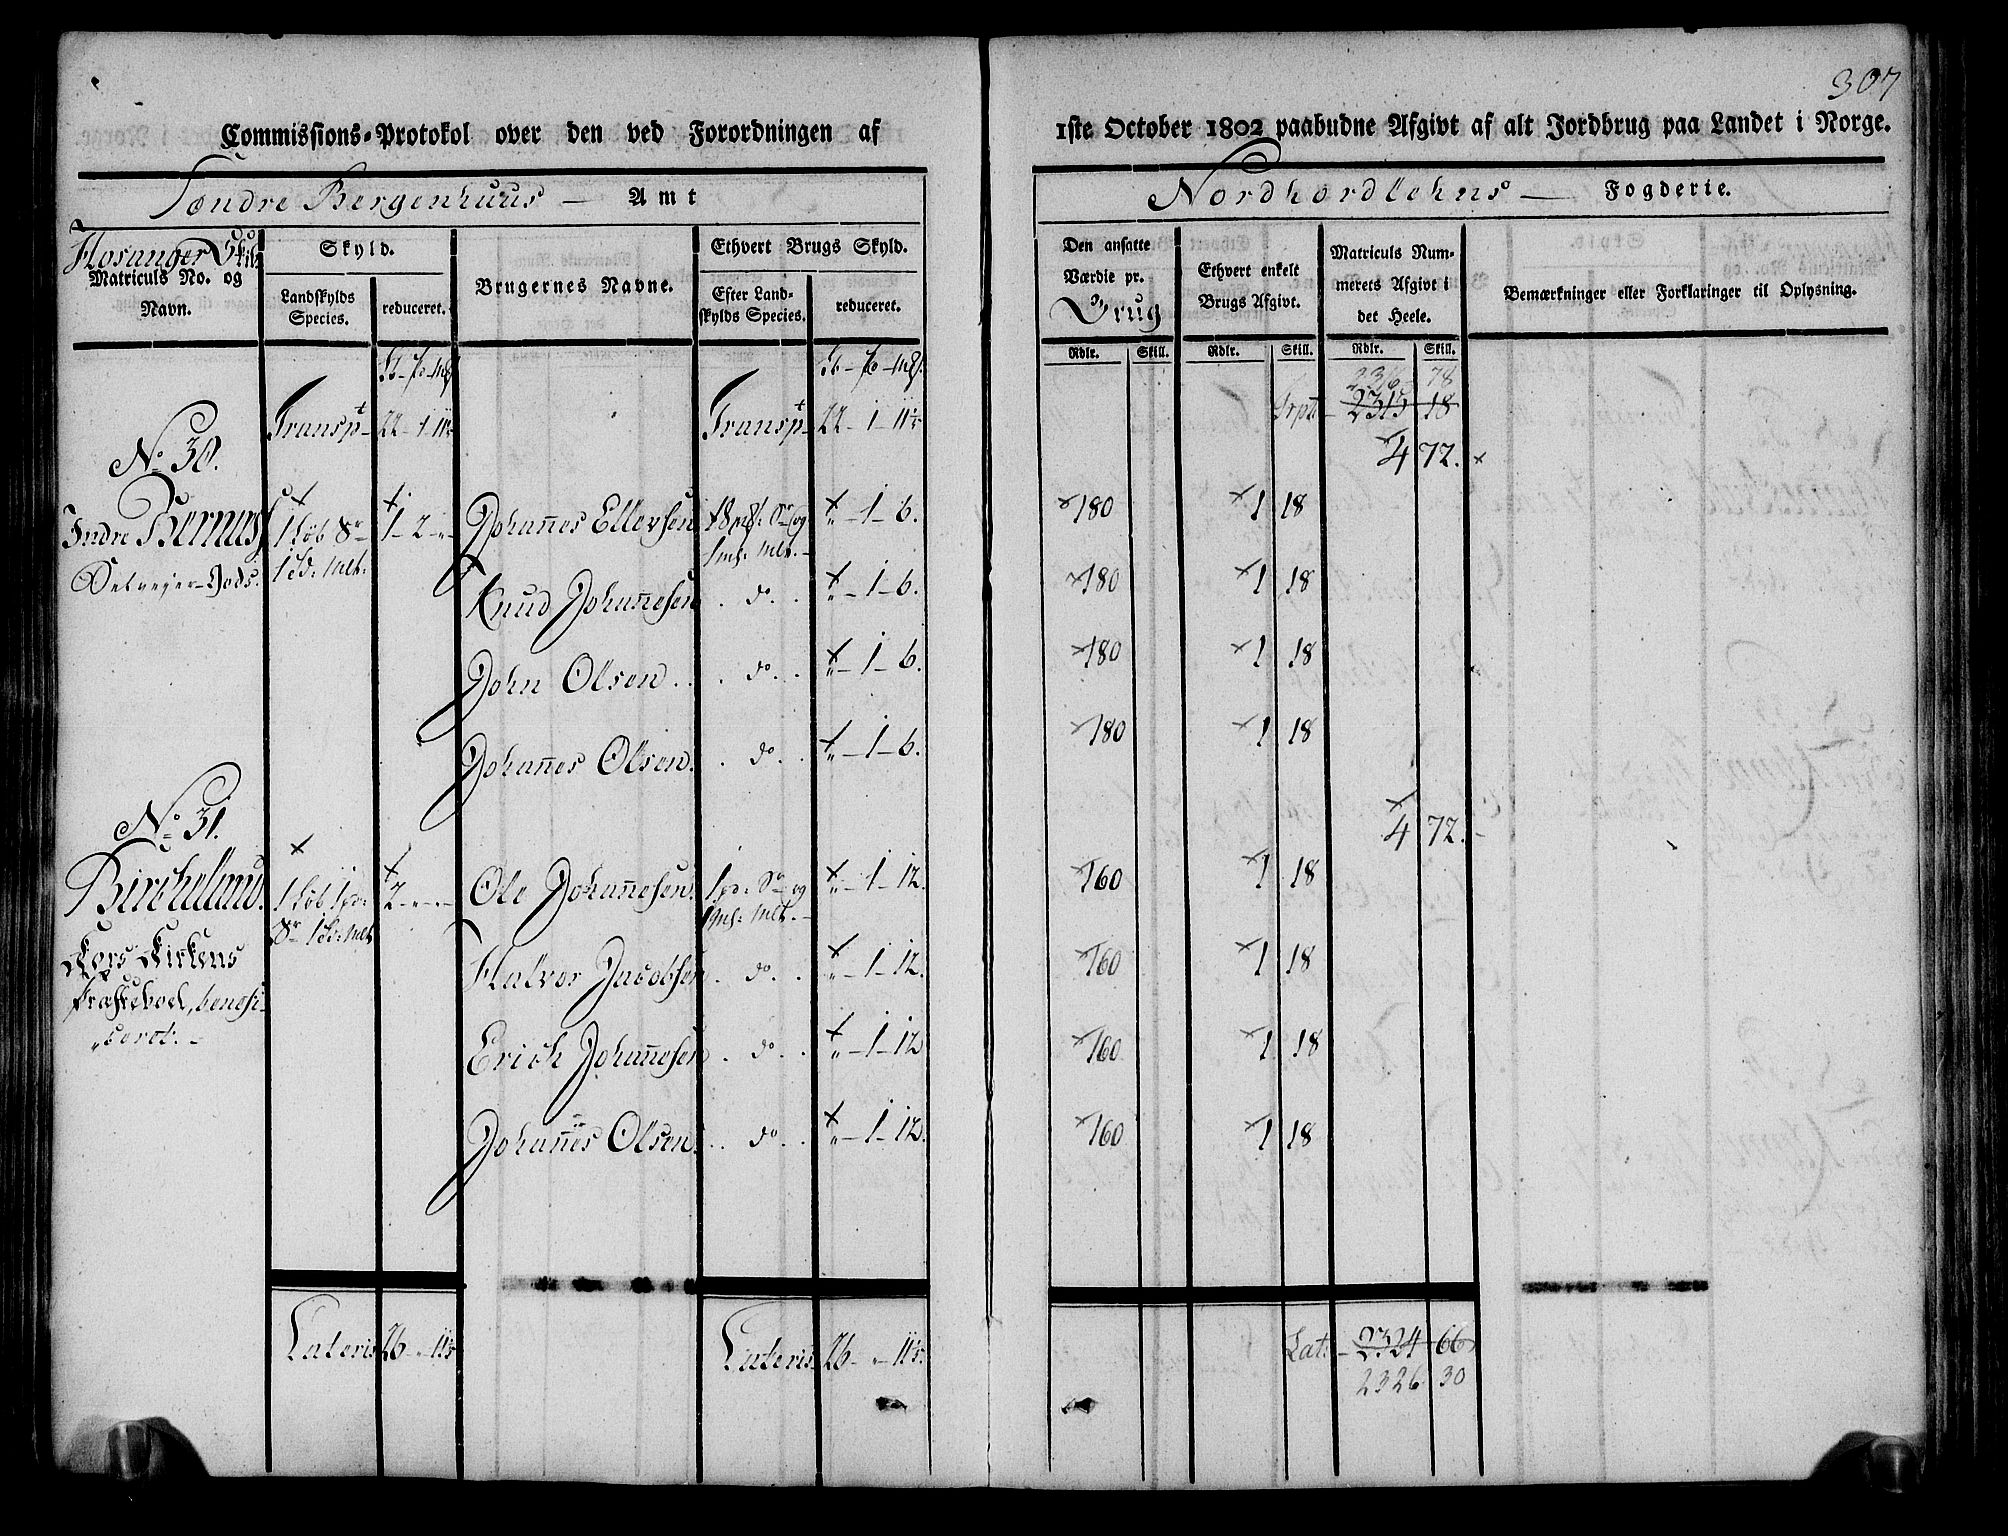 307
Commissions-Protokol over den ved Forordningen af 1ste October 1802 paabudne Afgivt af alt Jordbrug paa Landet i Norge.
Søndre Bergenhuus — Amt
Nordhordlehns — Fogderie.
Hosanger Skibr
Matriculs No. og Navn.
Skyld.
Landskylds Species.
reduceret.
Brugernes Navne.
Ethvert Brugs Skyld.
Efter Landskylds Species.
reduceret.
Den ansatte Værdie pr. Brug
Ethvert enkelt Brugs Afgivt.
Matriculs Nummerets Afgivt i det Heele.
Bemærkninger eller Forklaringer til Oplysning.
Rdlr. Skill. Rdlr. Skill. Rdlr. Skill.
2316 78
Transpt 22 - 1 - 11 Transpt 22 - 1 - 11 Trpt - 2315 18
No 30. 4 72.
Indre Bernæs 1 Løb Sr 1 - 2 - " Johannes Ellersen 18 mk: Sr og " - 1 - 6. 180 1 18
Selveyer-Gods. 1 Td: Mlt. 1 ms: Mlt.
Knud Johannesen do " - 1 - 6. 180 1 18
John Olsen do " - 1 - 6. 180 1 18
Johannes Olsen. do " - 1 - 6. 180 1 18
No 31. 4 72.
Birchelund. 1 Løb 1 pd: 2 - " - " Ole Johannesen. 1 pd: Sr og " - 1 - 12. 160 1 18
Sr 1 Td: Mlt 1 ms: Mlt.
Kors Kirkens Halvor Jacobsen do " - 1 - 12. 160 1 18
præsteboel, benefi-
"ceret. - Erich Johannesen do " - 1 - 12 160 1 18
Johannes Olsen. do " - 1 - 12. 160 1 18
Lateris 26 - " - 11 Lateris 26 - " - 11 Lat: - 2324 66
2326 30